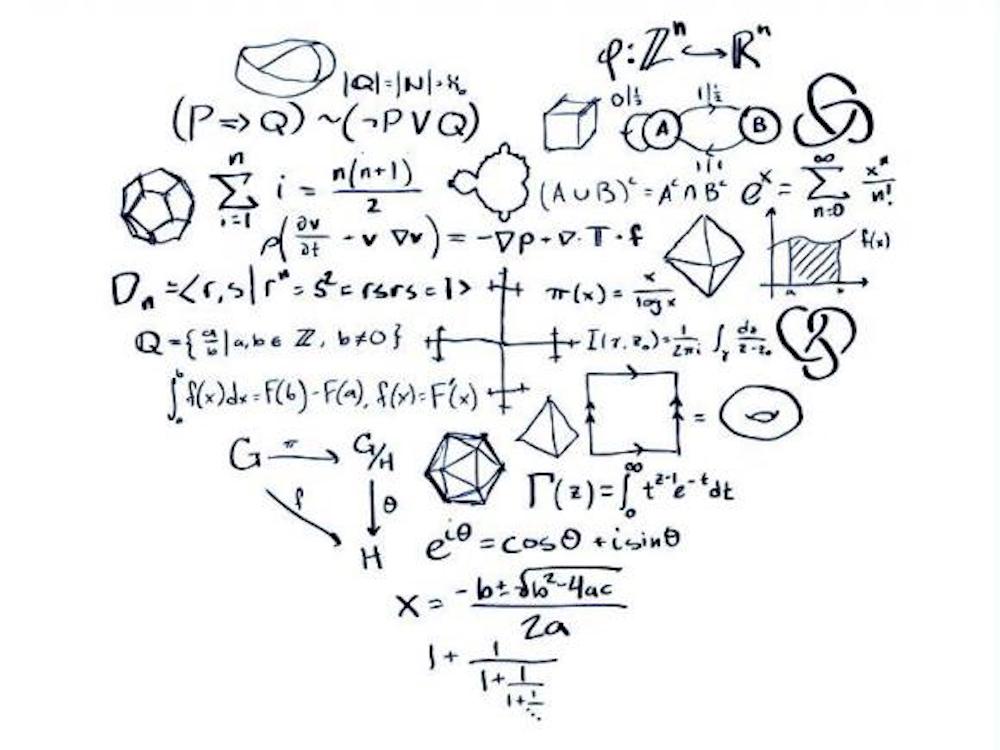 φ:ℤⁿ ↪ ℝⁿ
|Q|=|N|=ℵ₀
(P⇒Q)~(¬P∨Q)
0|½ 1|½
A B
1|1
∑_{i=1}^{n} i = n(n+1)/2
(A∪B)ᶜ=Aᶜ∩Bᶜ
eˣ = ∑_{n=0}^{∞} xⁿ/n!
ρ(∂v/∂t + v·∇v) = -∇p + ∇·T + f
f(x)
a b
Dₙ =<r,s|rⁿ=s²=rsrs=1>
π(x) = x/log x
Q={a/b|a,b∈ℤ, b≠0}
I(γ,z₀)=1/2πi ∫_γ dz/z-z₀
∫_a^b f(x)dx=F(b)-F(a), f(x)=F'(x)
=
G π G/H
f θ
H
Γ(z)=∫_0^∞ t^{z-1}e^{-t}dt
e^{iθ} =cosθ +isinθ
x= -b±√b²-4ac / 2a
1+ 1/1+1/1+1/⋱